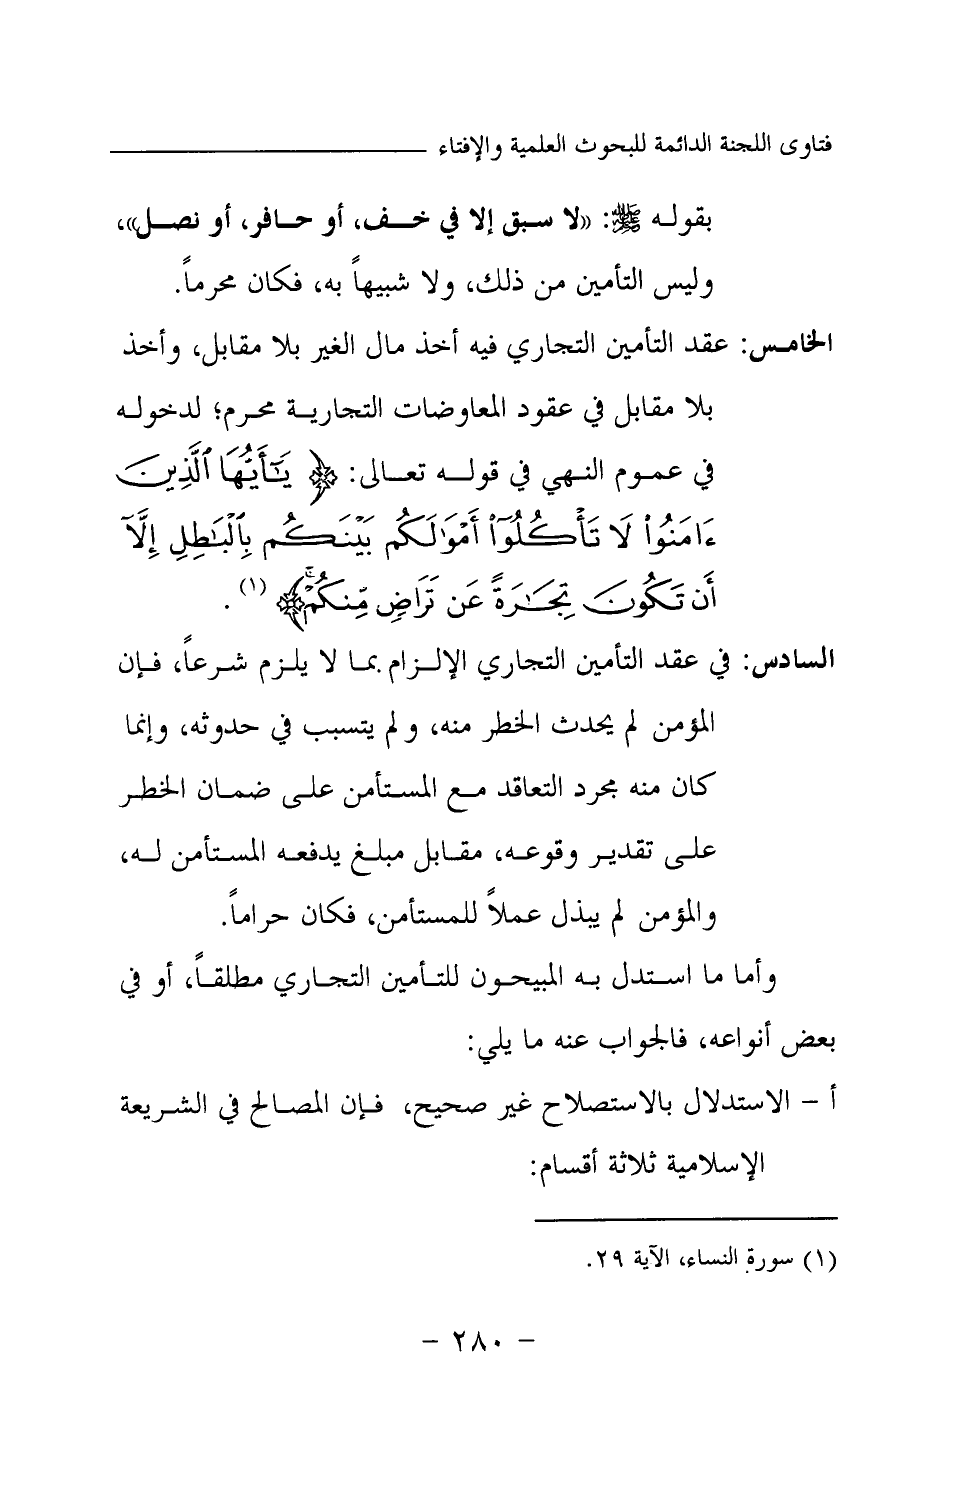 فتاوى اللجنة الدائمة للبحوث العلمية والإفتاء
بقوله ﷺ: «لا سبق إلا في خف، أو حافر، أو نصل»،
وليس التأمين من ذلك، ولا شبيهاً به، فكان محرماً.
الخامس: عقد التأمين التجاري فيه أخذ مال الغير بلا مقابل، وأخذ
بلا مقابل في عقود المعاوضات التجارية محرم؛ لدخوله
في عموم النهي في قوله تعالى: ﴿ يَٰٓأَيُّهَا ٱلَّذِينَ
ءَامَنُوا۟ لَا تَأْكُلُوٓا۟ أَمْوَٰلَكُم بَيْنَكُم بِٱلْبَٰطِلِ إِلَّآ
أَن تَكُونَ تِجَٰرَةً عَن تَرَاضٍ مِّنكُمْ ۚ﴾ (١) .
السادس: في عقد التأمين التجاري الإلزام بما لا يلزم شرعاً، فإن
المؤمن لم يحدث الخطر منه، ولم يتسبب في حدوثه، وإنما
كان منه مجرد التعاقد مع المستأمن على ضمان الخطر
على تقدير وقوعه، مقابل مبلغ يدفعه المستأمن له،
والمؤمن لم يبذل عملاً للمستأمن، فكان حراماً.
وأما ما استدل به المبيحون للتأمين التجاري مطلقاً، أو في
بعض أنواعه، فالجواب عنه ما يلي:
أ – الاستدلال بالاستصلاح غير صحيح، فإن المصالح في الشريعة
الإسلامية ثلاثة أقسام:
(١) سورة النساء، الآية ٢٩.
– ٢٨٠ –